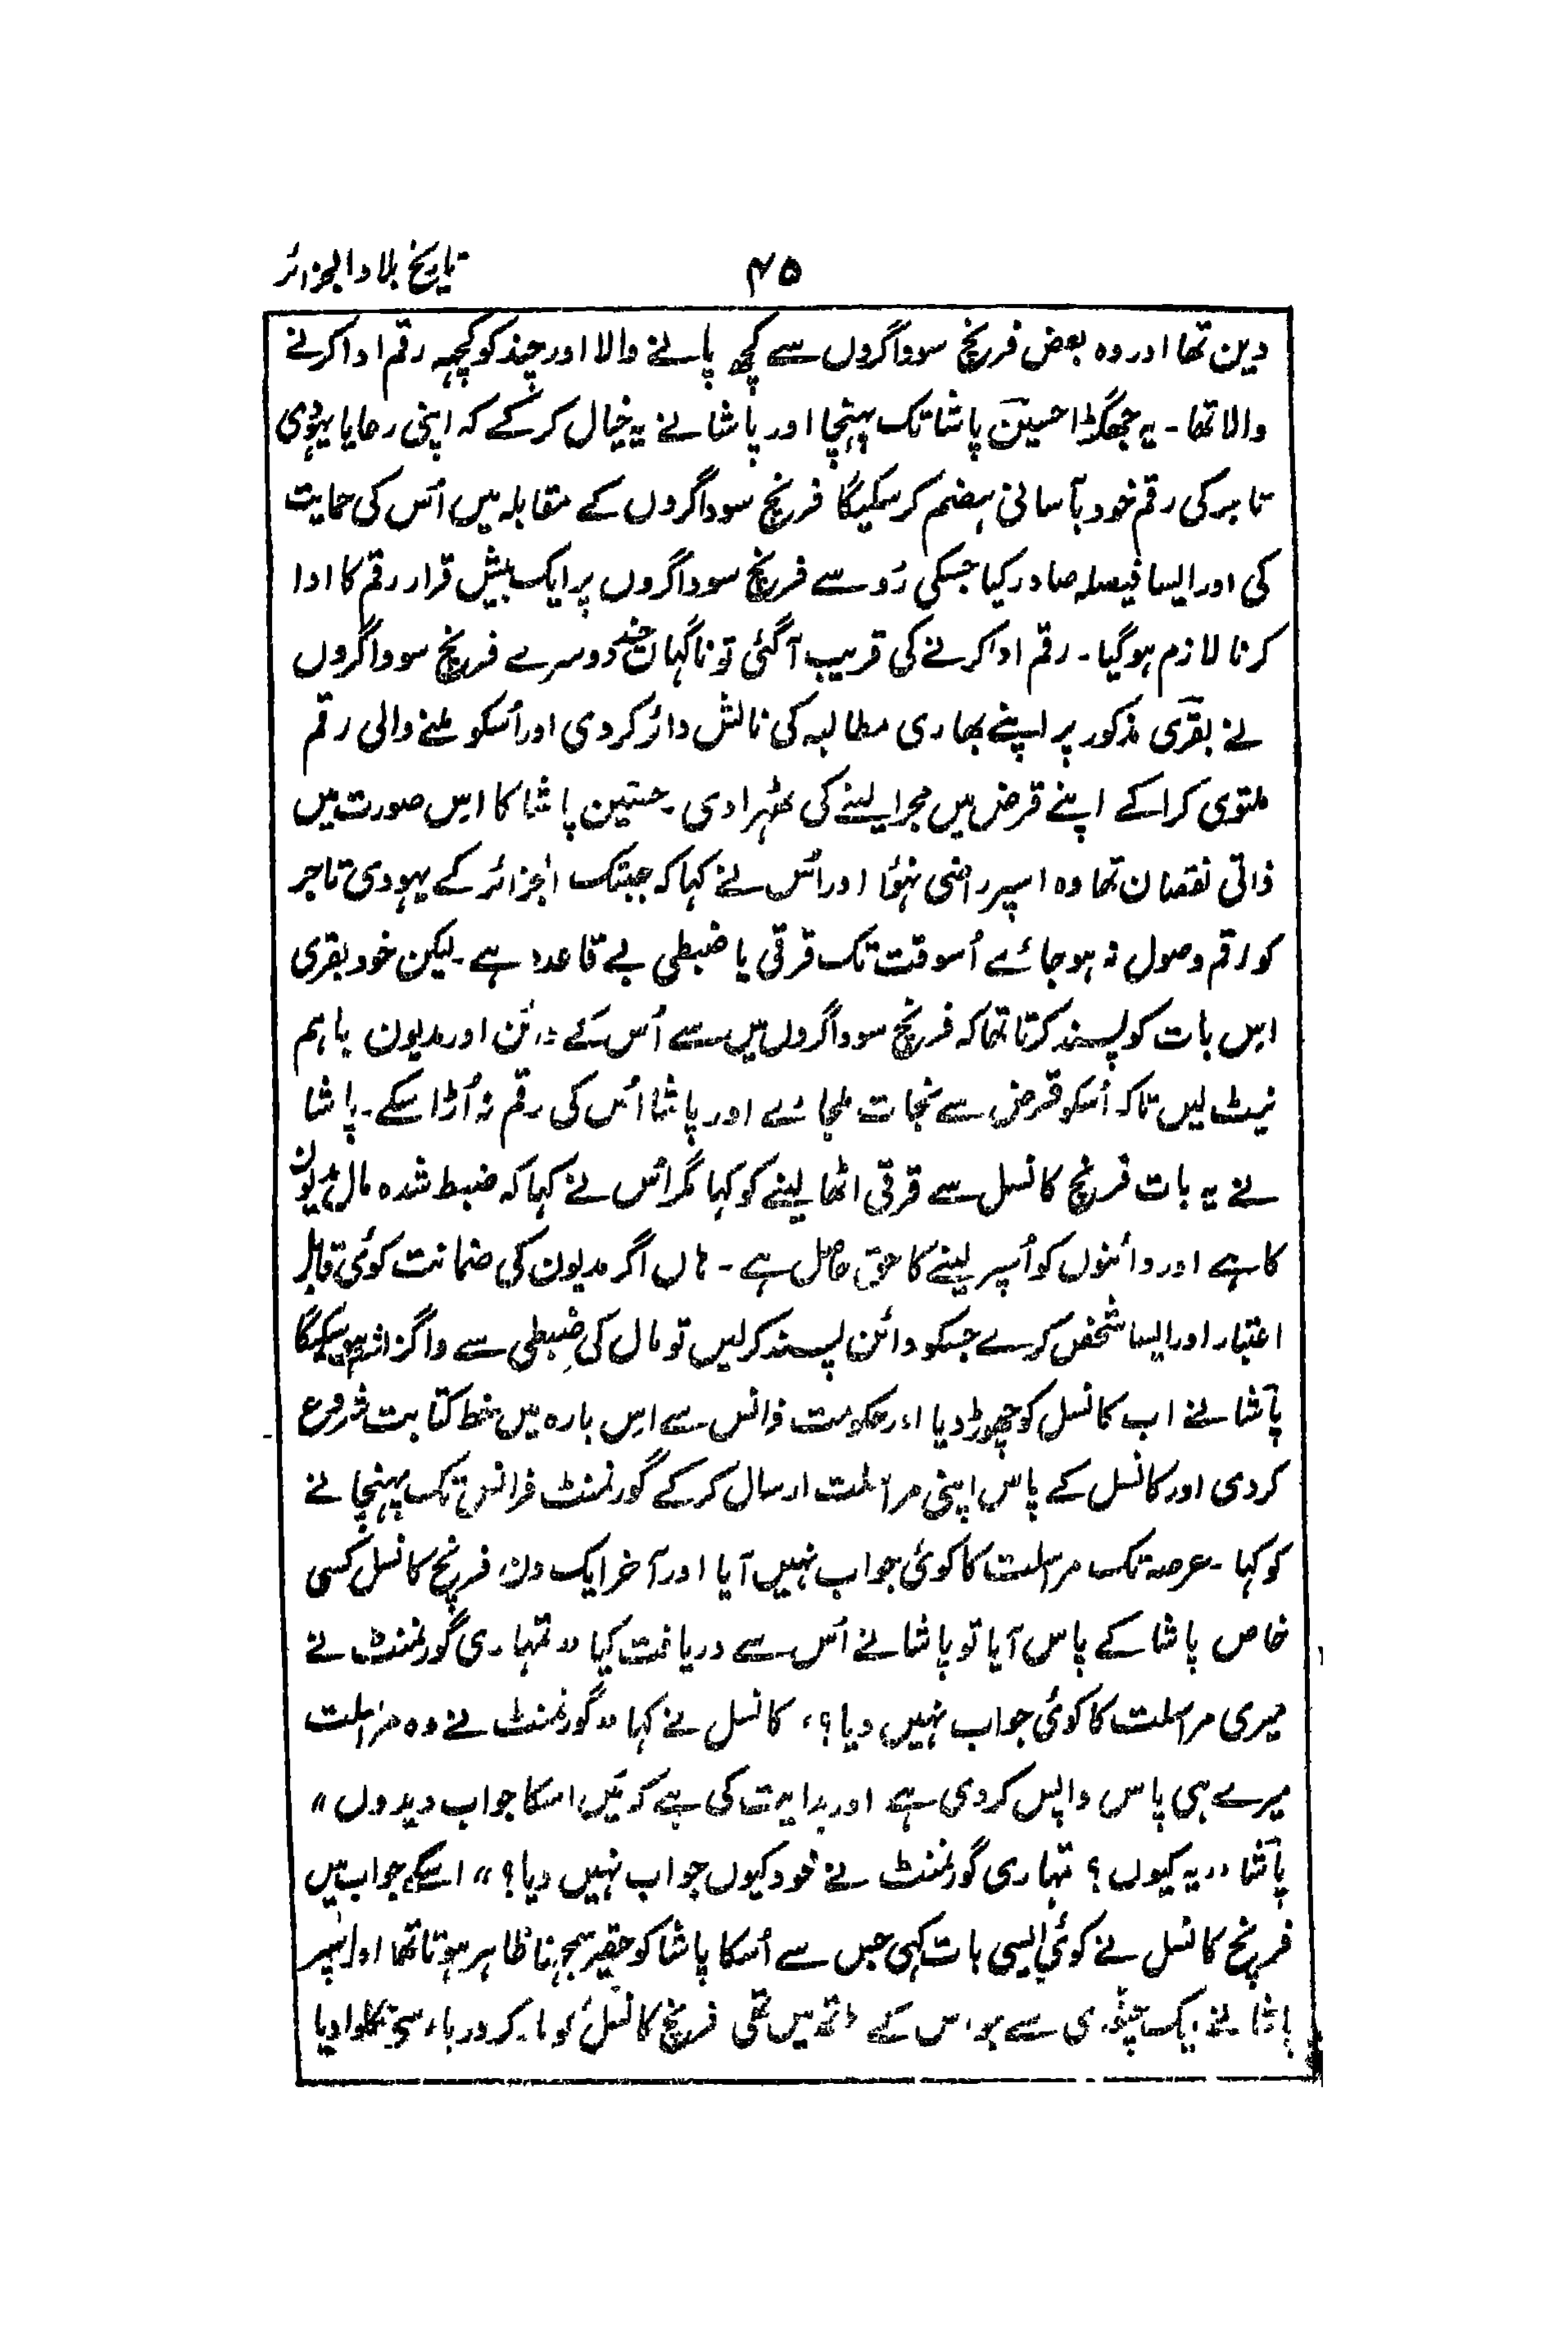 تاریخ بلاد الجزائر
۴۵
دین تھا اور وہ بعض فرنچ سوداگروں سے کچھ پانے والا اور چند کو کچہہ رقم ادا کرنے
والا تھا۔ یہ جھگڑا حسین پاشا تک پہنچا اور پاشا نے یہ خیال کر کے کہ اپنی رعایا یہودی
تاجر کی رقم خود بآسانی ہضم کر سکیگا فرنچ سوداگروں کے مقابلہ میں اُس کی حمایت
کی اور ایسا فیصلہ صادر کیا جسکی رُو سے فرنچ سوداگروں پر ایک بیش قرار رقم کا ادا
کرنا لازم ہوگیا۔ رقم ادا کرنے کی قریب آگئی تو ناگہان چند دوسرے فرنچ سوداگروں
نے بقری مذکور پر اپنے بھاری مطالبہ کی نالش دائر کردی اور اُسکو ملنے والی رقم
ملتوی کرا کے اپنے قرض میں مجرا لینے کی ٹھہرا دی۔ حسین پاشا کا اِس صورت میں
ذاتی نقصان تھا وہ اسپر راضی نہوُا اور اُس نے کہا کہ جبتک الجزائر کے یہودی تاجر
کو رقم وصول نہ ہو جائے اُسوقت تک قرقی یا ضبطی بے قاعدہ ہے۔ لیکن خود بقری
اِس بات کو پسند کرتا تھا کہ فرنچ سوداگروں میں سے اُس کے دائن اور مدیون باہم
نپٹ لیں تاکہ اُسکو قرض سے نجات ملجائے اور پاشا اُس کی رقم نہ اُڑا سکے۔ پاشا
نے یہ بات فرنچ کانسل سے قرقی اٹھا لینے کو کہا مگر اُس نے کہا کہ ضبط شدہ مال مدیون
کا ہے اور دائنوں کو اُسپر لینے کا حق حاصل ہے۔ ہاں اگر مدیون کی ضمانت کوئی قابل
اعتبار اور ایسا شخص کرے جسکو دائن پسند کرلیں تو مال کی ضبطی سے واگزاشت ہو سکیگا
پاشا نے اب کانسل کو چھوڑ دیا اور حکومت فرانس سے اِس بارہ میں خط کتابت شروع
کردی اور کانسل کے پاس اپنی مراسلت ارسال کرکے گورنمنٹ فرانس تک پہنچانے
کو کہا۔ عرصہ تک مراسلت کا کوئی جواب نہیں آیا اور آخر ایک دن فرنچ کانسل کسی
خاص پاشا کے پاس آیا تو پاشا نے اُس سے دریافت کیا ’’تمہاری گورنمنٹ نے
میری مراسلت کا کوئی جواب نہیں دیا؟، کانسل نے کہا ’’گورنمنٹ نے وہ مراسلت
میرے ہی پاس واپس کردی ہے اور ہدایت کی ہے کہ مَیں اسکا جواب دیدوں‘‘
پاشا ’’یہ کیوں؟ تمہاری گورنمنٹ نے خود کیوں جواب نہیں دیا؟‘‘ اسکے جواب میں
فرنچ کانسل نے کوئی ایسی بات کہی جس سے اُسکا پاشا کو حقیر سمجہنا ظاہر ہوتا تھا اور اسپر
پاشا نے ایک چھڑی سے جو اس کے ہاتھ میں تھی فرنچ کانسل کو مار کر دربار سے نکلوا دیا